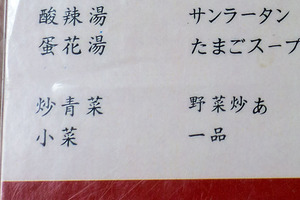 酸辣湯 サンラータン
蛋花湯 たまごスープ
炒青菜 野菜炒ぁ
小菜 一品